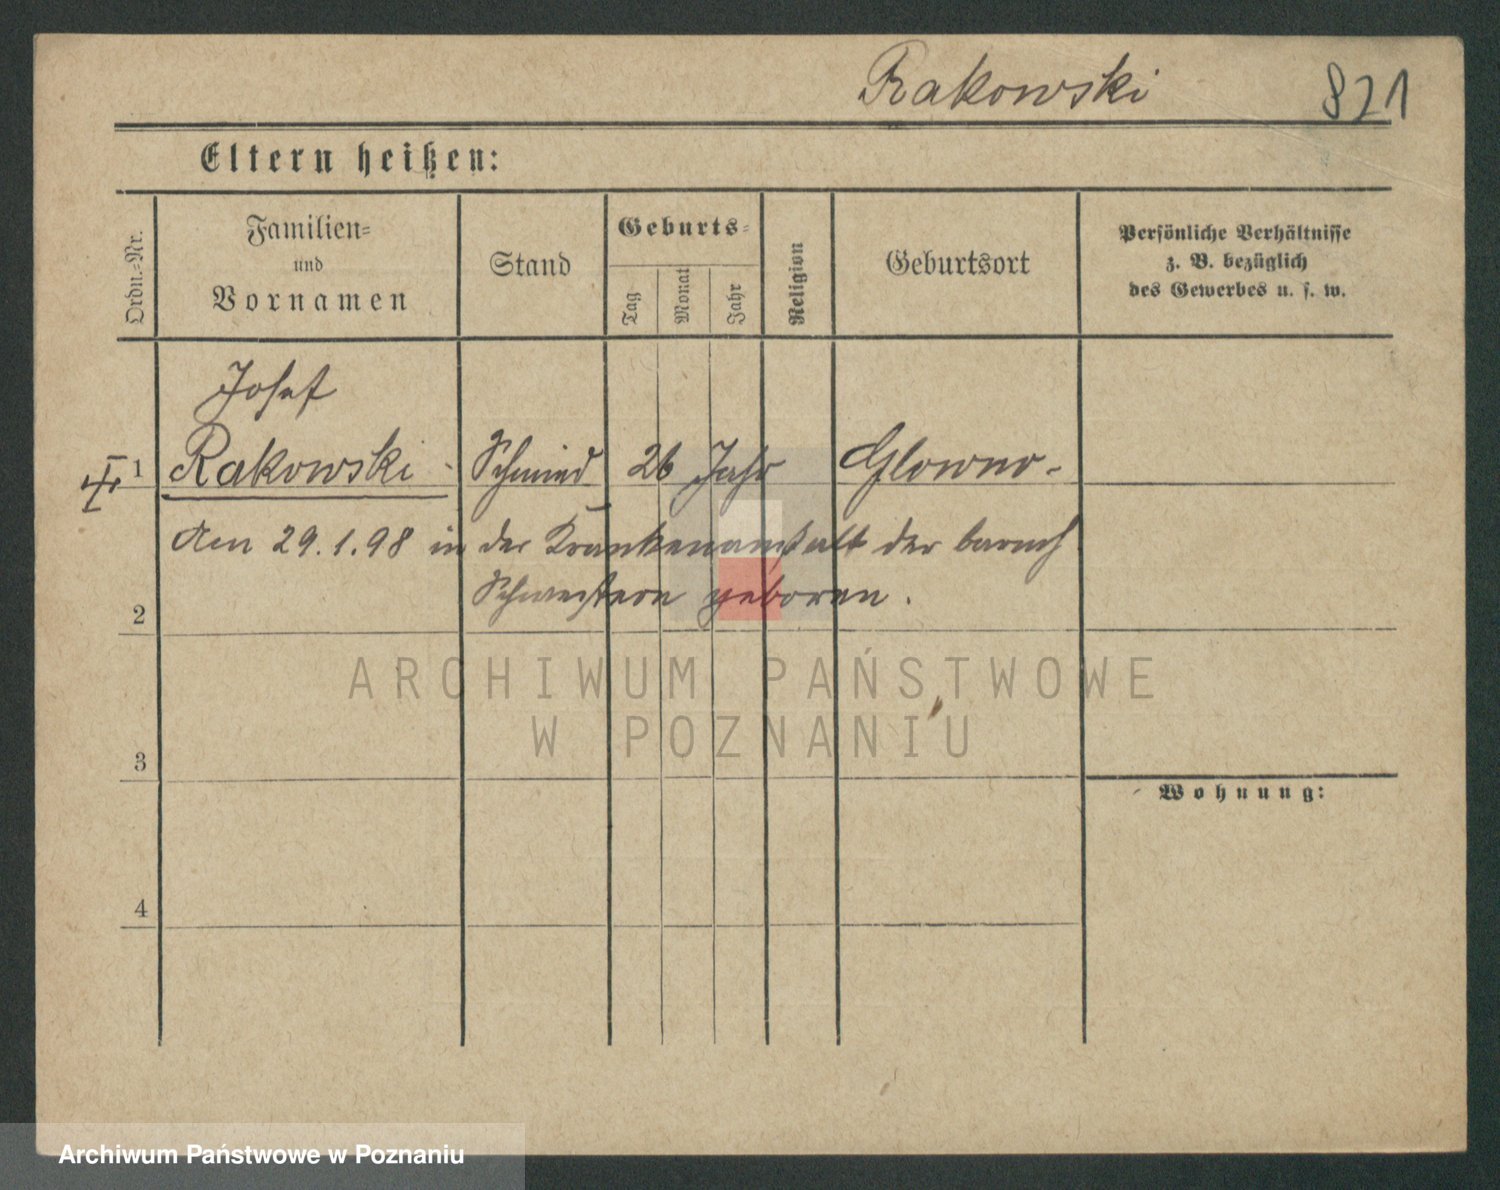 Rakowski 821
Eltern heißen:
Ordn.=Nr.
Familien=
und
Vornamen
Stand
Geburts=
Tag
Monat
Jahr
Religion
Geburtsort
Persönliche Verhältnisse
z. B. bezüglich
des Gewerbes u. s. w.
Josef
1 Rakowski - Schmied 26 Jahr Glowno -
Am 29.1.98 in der Krankenanstalt der barmh
2 Schwestern geboren.
3
Wohnung:
4
ARCHIWUM PAŃSTWOWE
W POZNANIU
Archiwum Państwowe w Poznaniu